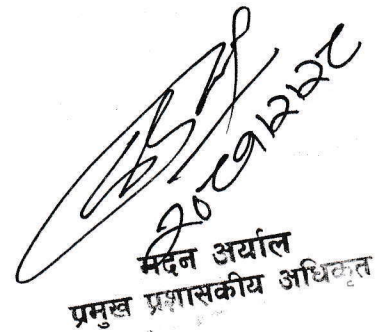 २०८१।२।२८
मदन अर्याल
प्रमुख प्रशासकीय अधिकृत